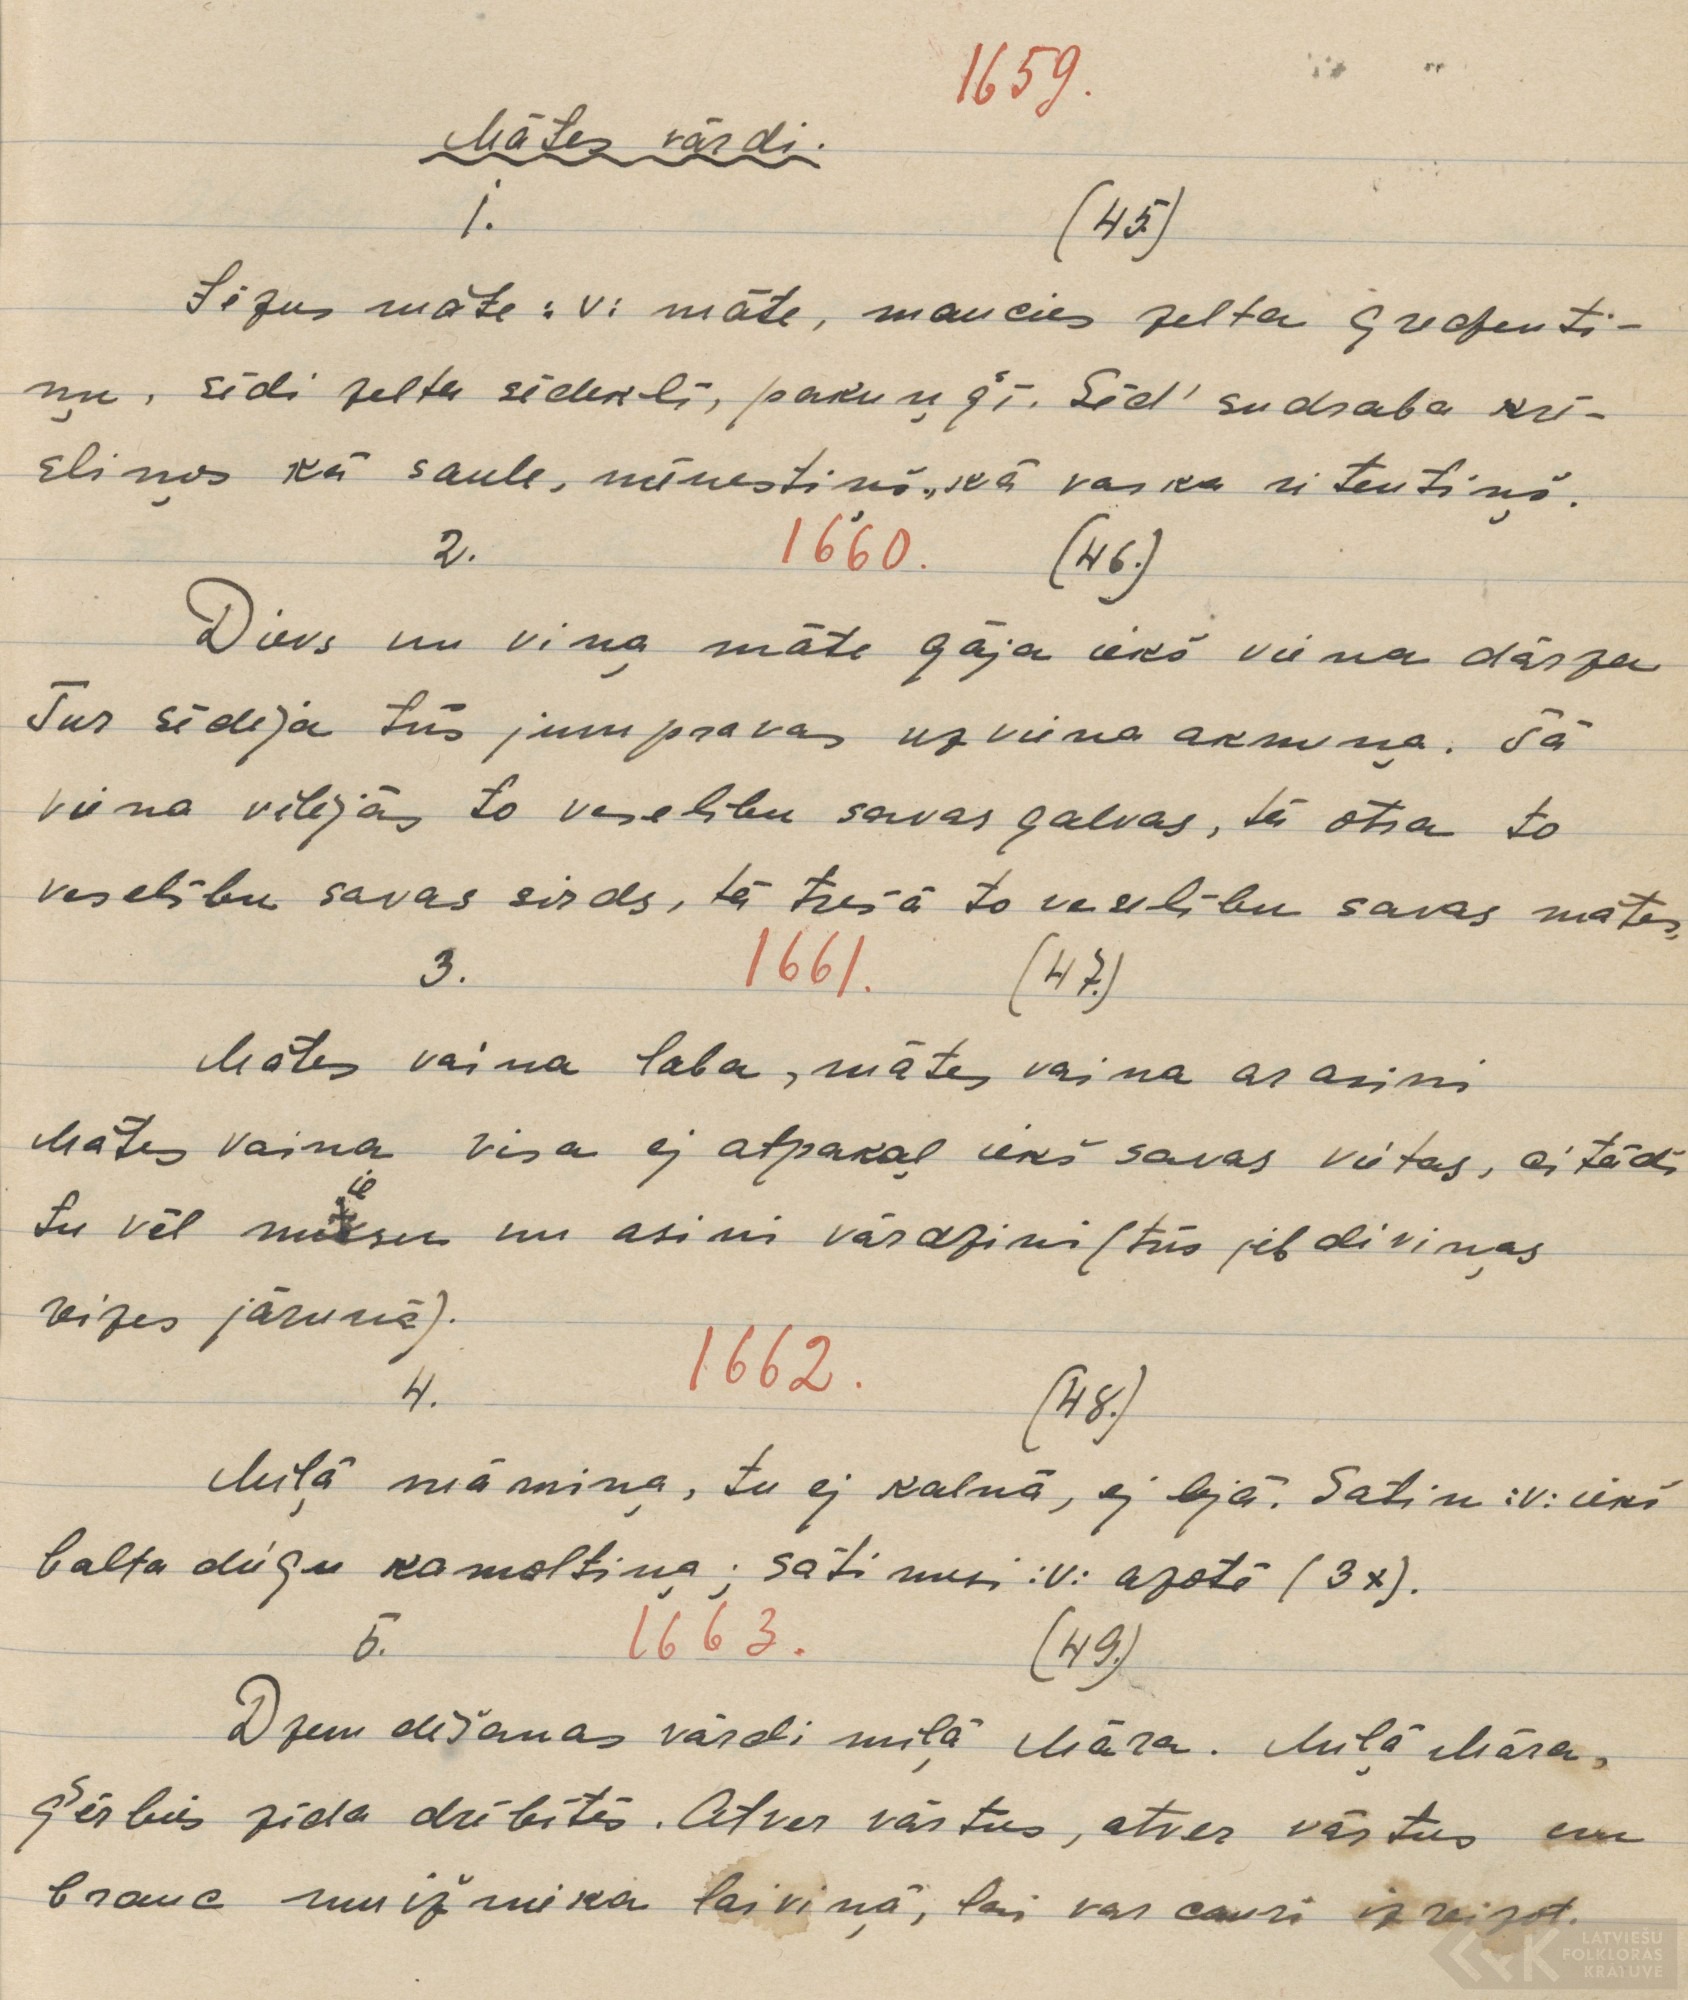 1659.
Mātes vārdi.
1. (45.)
Jēzus māte :v: māte, maucies zelta gredzenti-
ņu, sēdi zelta sēdeklī, pakuņģī. Sēd' sudraba krē-
sliņos kā saule, mēnestiņš, kā vaska ritentiņš.
2. 1660. (46.)
Dievs un viņa māte gāja iekš viena dārza
Tur sēdēja trīs jumpravas uz viena akmeņa. Tā
viena vēlējās to veselību savas galvas, tā otra to
veselību savas sirds, tā trešā to veselību savas mātes.
3. 1661. (47.)
Mātes vaina laba, mātes vaina ar asini
Mātes vaina visa ej atpakaļ iekš savas vietas, citādi
tu vēl miesu un asini vārdzini (trīs jeb diviņas
reizes jārunā).
4. 1662. (48.)
Mīļā māmiņa, tu ej kalnā, ej lejā. Satin :v: iekš
balta diegu kamoltiņa; satinusi :v: azotē (3x).
5. 1663. (49.)
Dzemdēšanas vārdi mīļā Māra. Mīļā Māra,
ģērbies zīda drēbītēs. Atver vārtus, atver vārtus un
brauc muižnieka laiviņā, lai var cauri izreizot.
LATVIEŠU
FOLKLORAS
KRĀTUVE